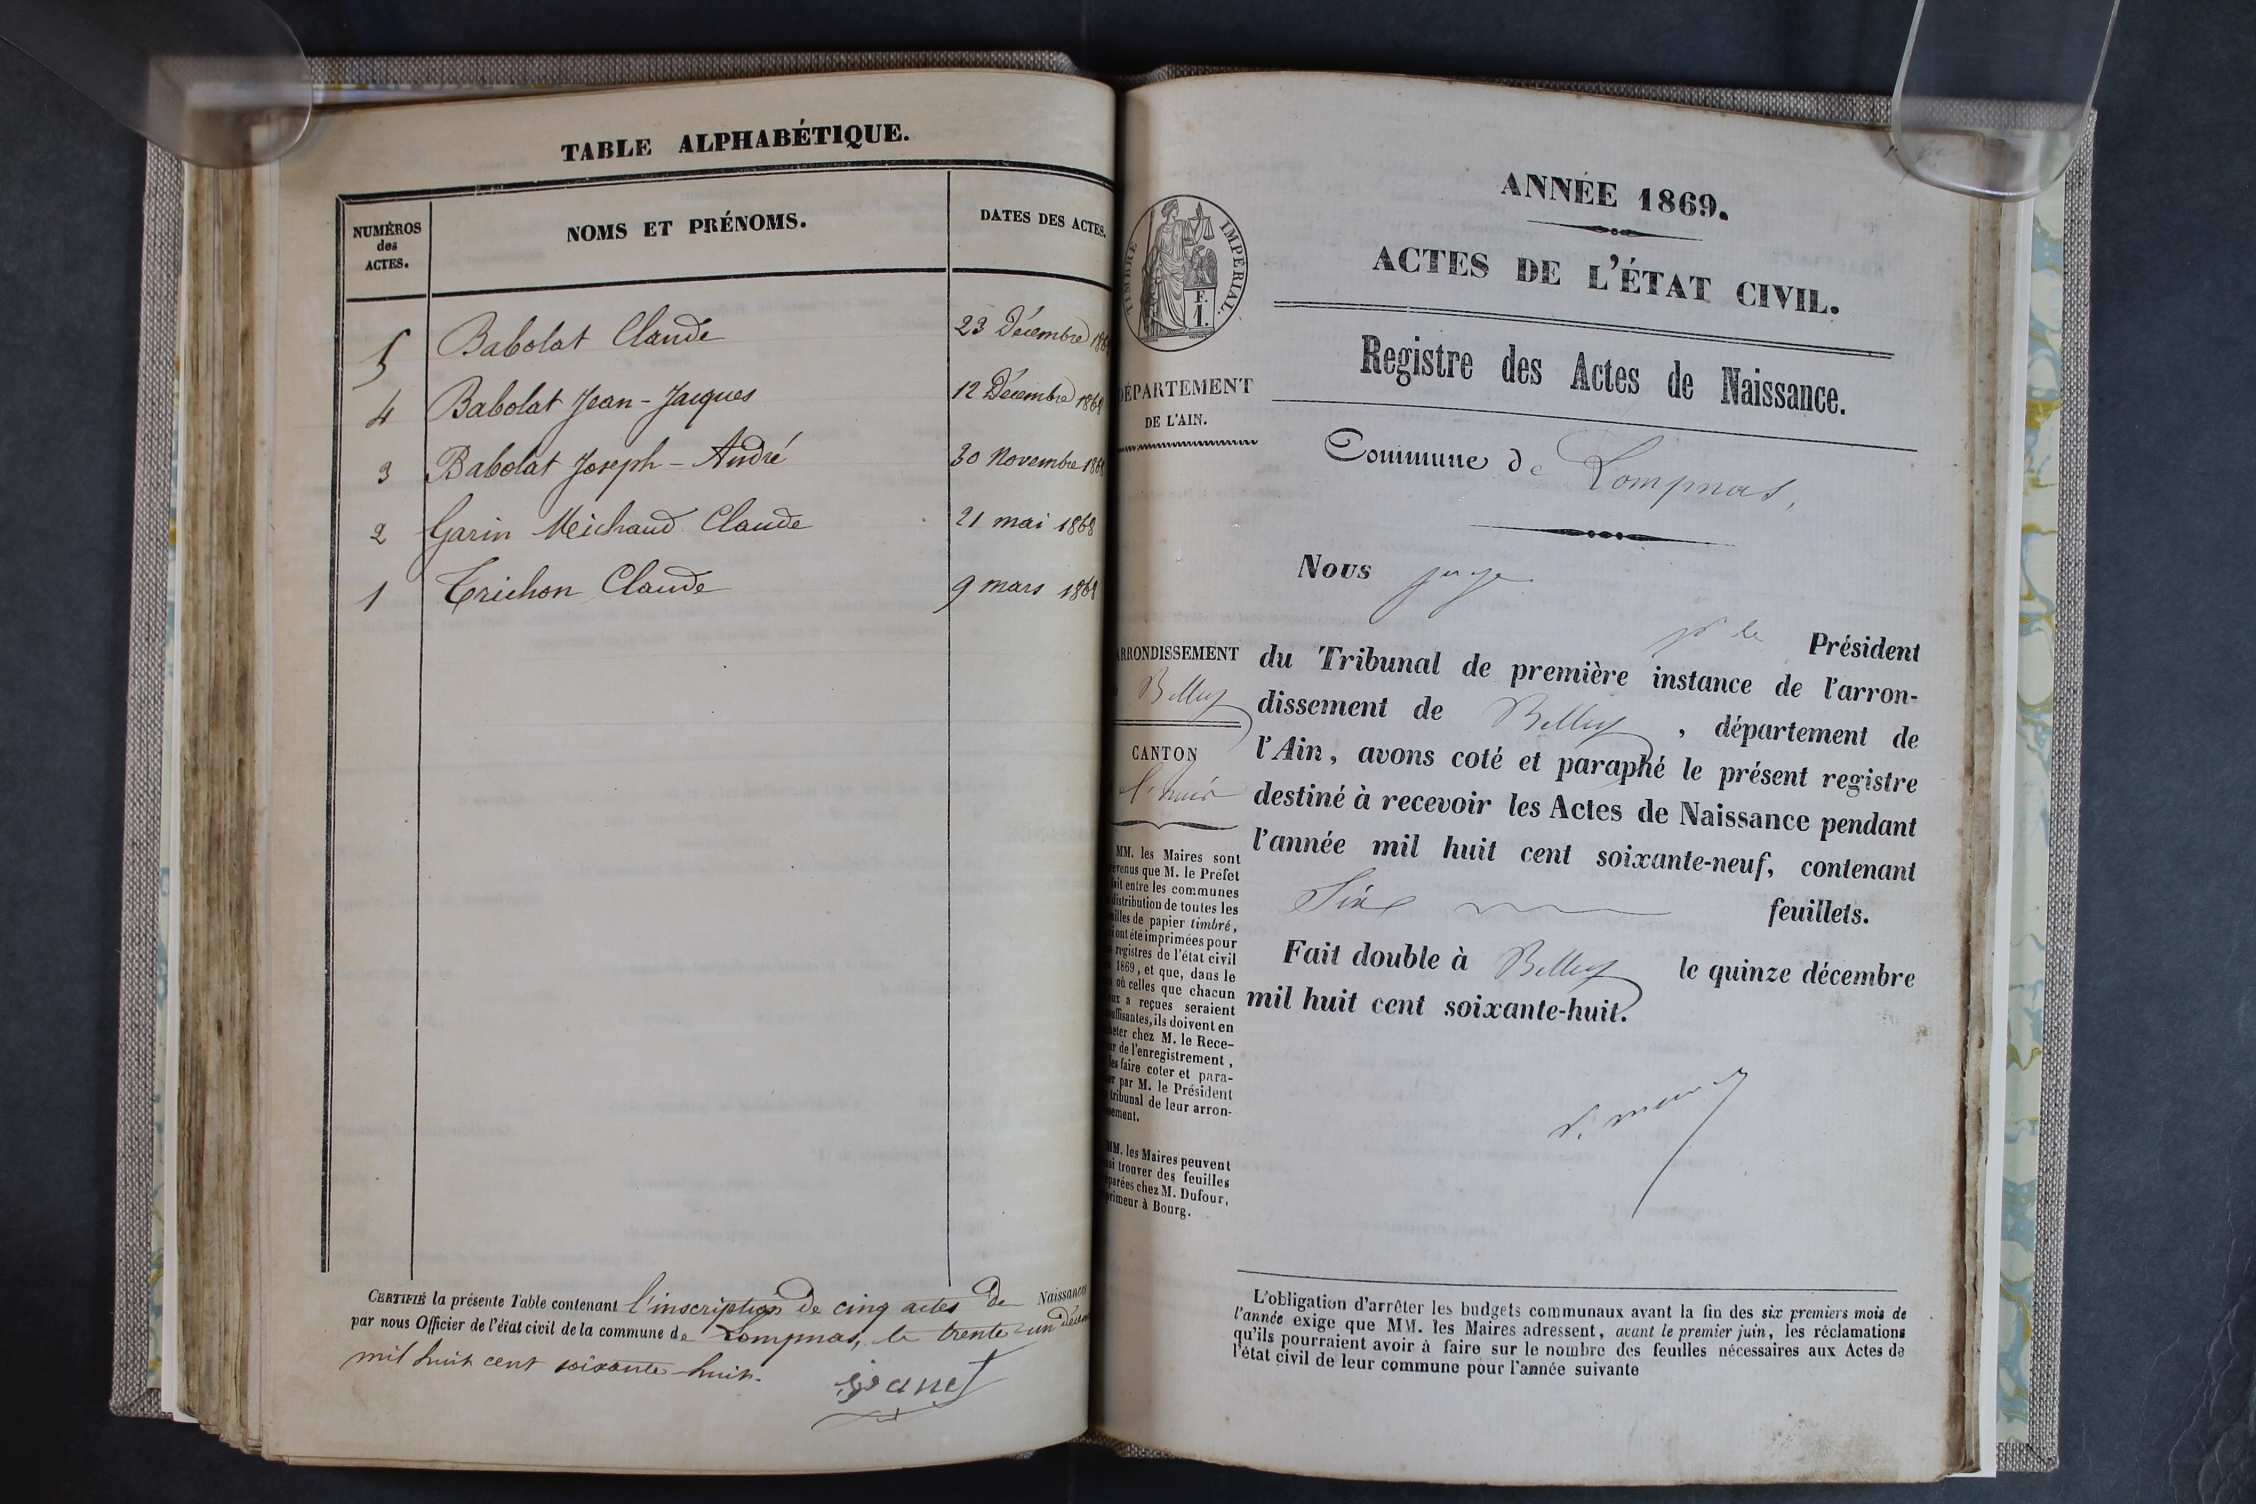 TABLE ALPHABÉTIQUE.
NUMÉROS des ACTES.
NOMS ET PRÉNOMS.
DATES DES ACTES.
5 Babolat Claude 23 Décembre 1868
4 Babolat Jean-Jacques 12 Décembre 1868
3 Babolat Joseph-André 30 Novembre 1868
2 Garin Michaud Claude 21 mai 1868
1 Trichon Claude 9 mars 1868
CERTIFIÉ la présente Table contenant l'inscription de cinq actes de Naissances
par nous Officier de l'état civil de la commune de Lompnas, le trente un
mil huit cent soixante-huit.
TIMBRE IMPÉRIAL.
F.
1.
DÉPARTEMENT
DE L'AIN.
ARRONDISSEMENT
Belley
CANTON
MM. les Maires sont
que M. le Préfet
entre les communes
distribution de toutes les
de papier timbré,
ont été imprimées pour
registres de l'état civil
1869, et que, dans le
où celles que chacun
a reçues seraient
ils doivent en
chez M. le Rece-
de l'enregistrement,
les faire coter et para-
par M. le Président
tribunal de leur arron-
MM. les Maires peuvent
trouver des feuilles
chez M. Dufour,
à Bourg.
ANNÉE 1869.
ACTES DE L'ÉTAT CIVIL.
Registre des Actes de Naissance.
Commune de Lompnas,
Nous juge
pr le Président
du Tribunal de première instance de l'arron-
dissement de Belley, département de
l'Ain, avons coté et paraphé le présent registre
destiné à recevoir les Actes de Naissance pendant
l'année mil huit cent soixante-neuf, contenant
Six feuillets.
Fait double à Belley le quinze décembre
mil huit cent soixante-huit.
L'obligation d'arrêter les budgets communaux avant la fin des six premiers mois de
l'année exige que MM. les Maires adressent, avant le premier juin, les réclamations
qu'ils pourraient avoir à faire sur le nombre des feuilles nécessaires aux Actes de
l'état civil de leur commune pour l'année suivante